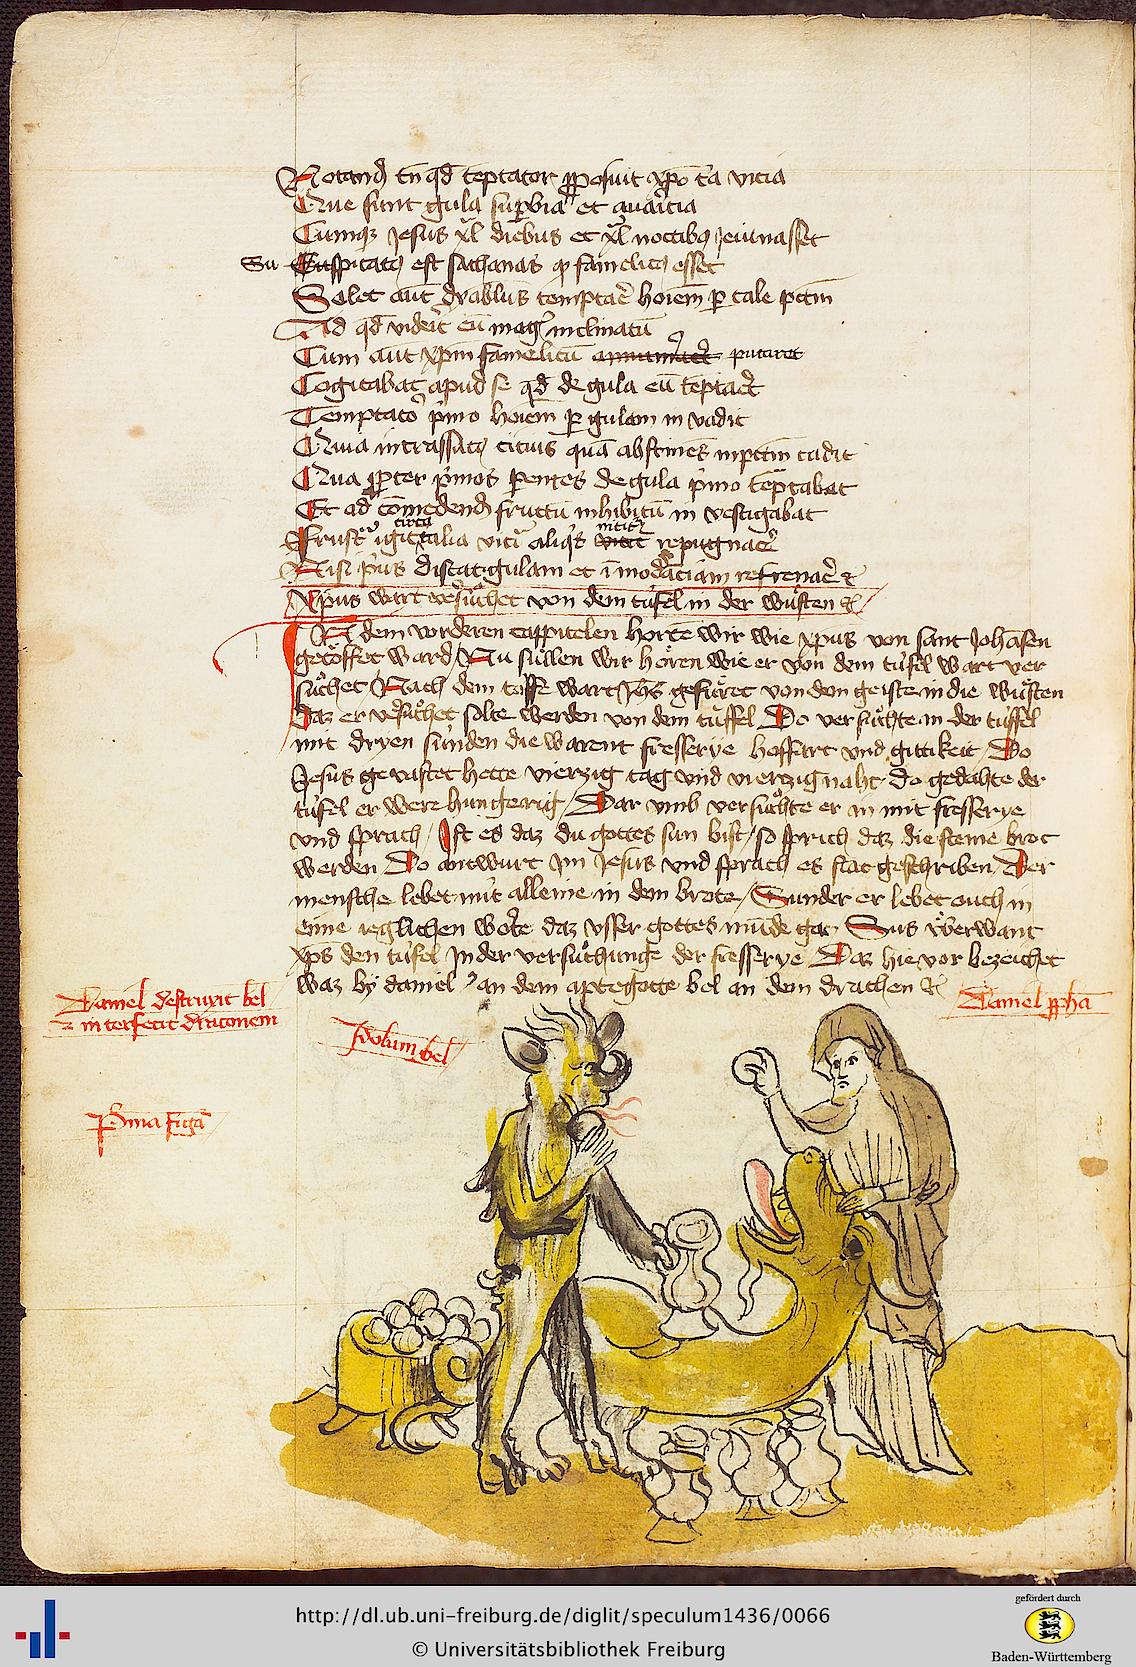 Notand tn qd teptator pposuit xpo tria vitia
Que sunt gula supbia et auaritia
Cumqz Jesus xl diebus et xl noctibus jeiunasset
Su spicatus est sathanas qd famelicus esset
Solet aut dyablus temptare hoiem p tale pctm
Ad qd viderit eu magis inclinatu
Cum aut xpm famelicu putaret
Cogitabat apud se qd de gula eu teptaret
Temptator pmo hoiem p gulam in vadit
Quia incrassatus citius qua abstines in pctm cadit
Qua ppter pmos pentes de gula pmo teptabat
Et ad comedend fructu inhibitu in vestigabat
Frustra igitur circa alia vitia aliqs nititur repugnare
Nisi prius discat gulam et imoderanciam refrenare
Xpus wart versuchet von dem tufel in der wusten
IN dem vorderen cappitelen horte wir wie xpus von sant Johasen
getoffet ward / Nu sullen wir horen wie er von dem tufel wart ver
suchet / Nach dem toffe wart Jhs gefuret von dem geiste in die wusten
Daz er versuchet solte werden von dem tuffel Do versuchte in der tuffel
mit dryen sunden die warent fresserye hoffart vnd gittikeit / Do
Jesus gevastet hette vierzig tag vnd vierzig naht do gedahte der
tufel er were hungerig / Dar vmb versuchte er in mit fresserye
vnd sprach / Ist es daz du gottes sun bist / so sprich daz die steine brot
werden Do antwurt Im Jesus vnd sprach es stat geschriben / Der
mensche lebet nit alleine in dem brote / Sunder er lebet ouch in
eime reglichen worte daz vsser gottes munde gat Sus vberwant
xps den tufel In der versuchunge der fresserye Daz hie vor bezeichet
waz by daniel / an dem aptegotte bel an dem drachen
Daniel destruxit bel
z interfecit draconem
Daniel ppha
Idolum bel
Pma figa
http://dl.ub.uni-freiburg.de/diglit/speculum1436/0066
© Universitätsbibliothek Freiburg
gefördert durch
Baden-Württemberg